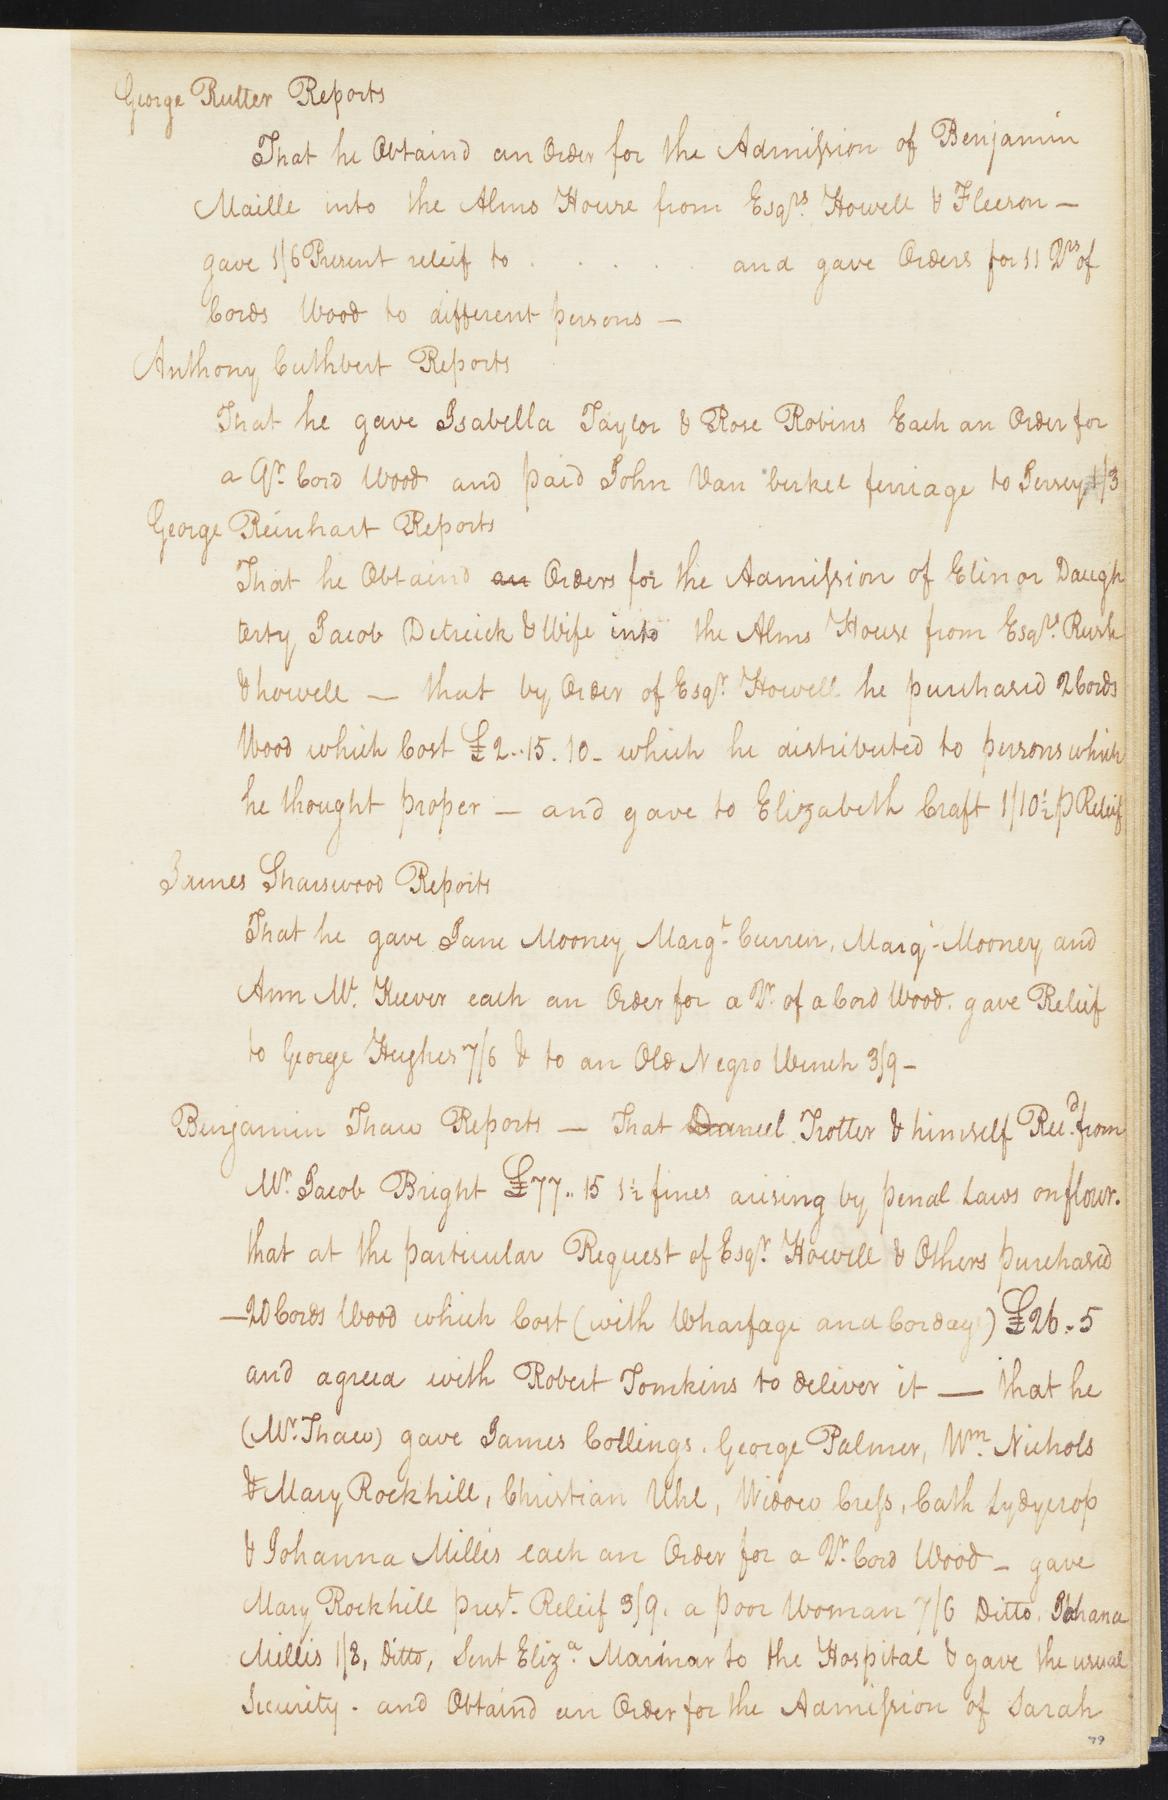 George Rutter Reports
That he Obtaind an Order for the Admission of Benjamin
Maille into the Alms House from Esqrs. Howell & Fleeson —
gave 1/6 Present releif to . . . . . and gave Orders for 11 Qrs of
Cords Wood to different persons —
Anthony Cuthbert Reports
That he gave Isabella Taylor & Rose Robins Each an Order for
a Qr. Cord Wood and paid John Van berkel ferriage to Jersey 1/3
George Reinhart Reports
That he Obtaind an Orders for the Admission of Elinor Daugh
terty, Jacob Detreick & Wife into the Alms House from Esqrs. Rush
& howell — that by Order of Esqr. Howell he purchased 2 Cords
Wood which Cost £2..15.10 - which he distributed to persons which
he thought proper — and gave to Elizabeth Craft 1/10½ p Releif
James Sharswood Reports
That he gave Jane Mooney Margt. Curren, Margt. Mooney and
Ann Mc. Keever each an Order for a Qr. of a Cord Wood. gave Relief
to George Hughes 7/6 & to an Old Negro Wench 3/9 -
Benjamin Thaw Reports — That Daniel Trotter & himself Recd. from
Mr. Jacob Bright £77..15 1½ fines arising by penal Laws on flour.
that at the particular Request of Esqr. Howell & Others purchased
— 20 Cords Wood which Cost (with Wharfage and Cordage) £26..5
and agreed with Robert Tomkins to deliver it — that he
(Mr. Thaw) gave James Collings. George Palmer, Wm. Nichols
& Mary Rockhill, Christian Uhl, Widow Cress, Cath Lydycrop
& Johanna Millis each an Order for a Qr. Cord Wood — gave
Mary Rockhill prest. Releif 3/9. a poor Woman 7/6 Ditto. Johana
Millis 1/8, Ditto, Sent Eliza. Marinar to the Hospital & gave the usual
Security. and Obtaind an Order for the Admission of Sarah
79